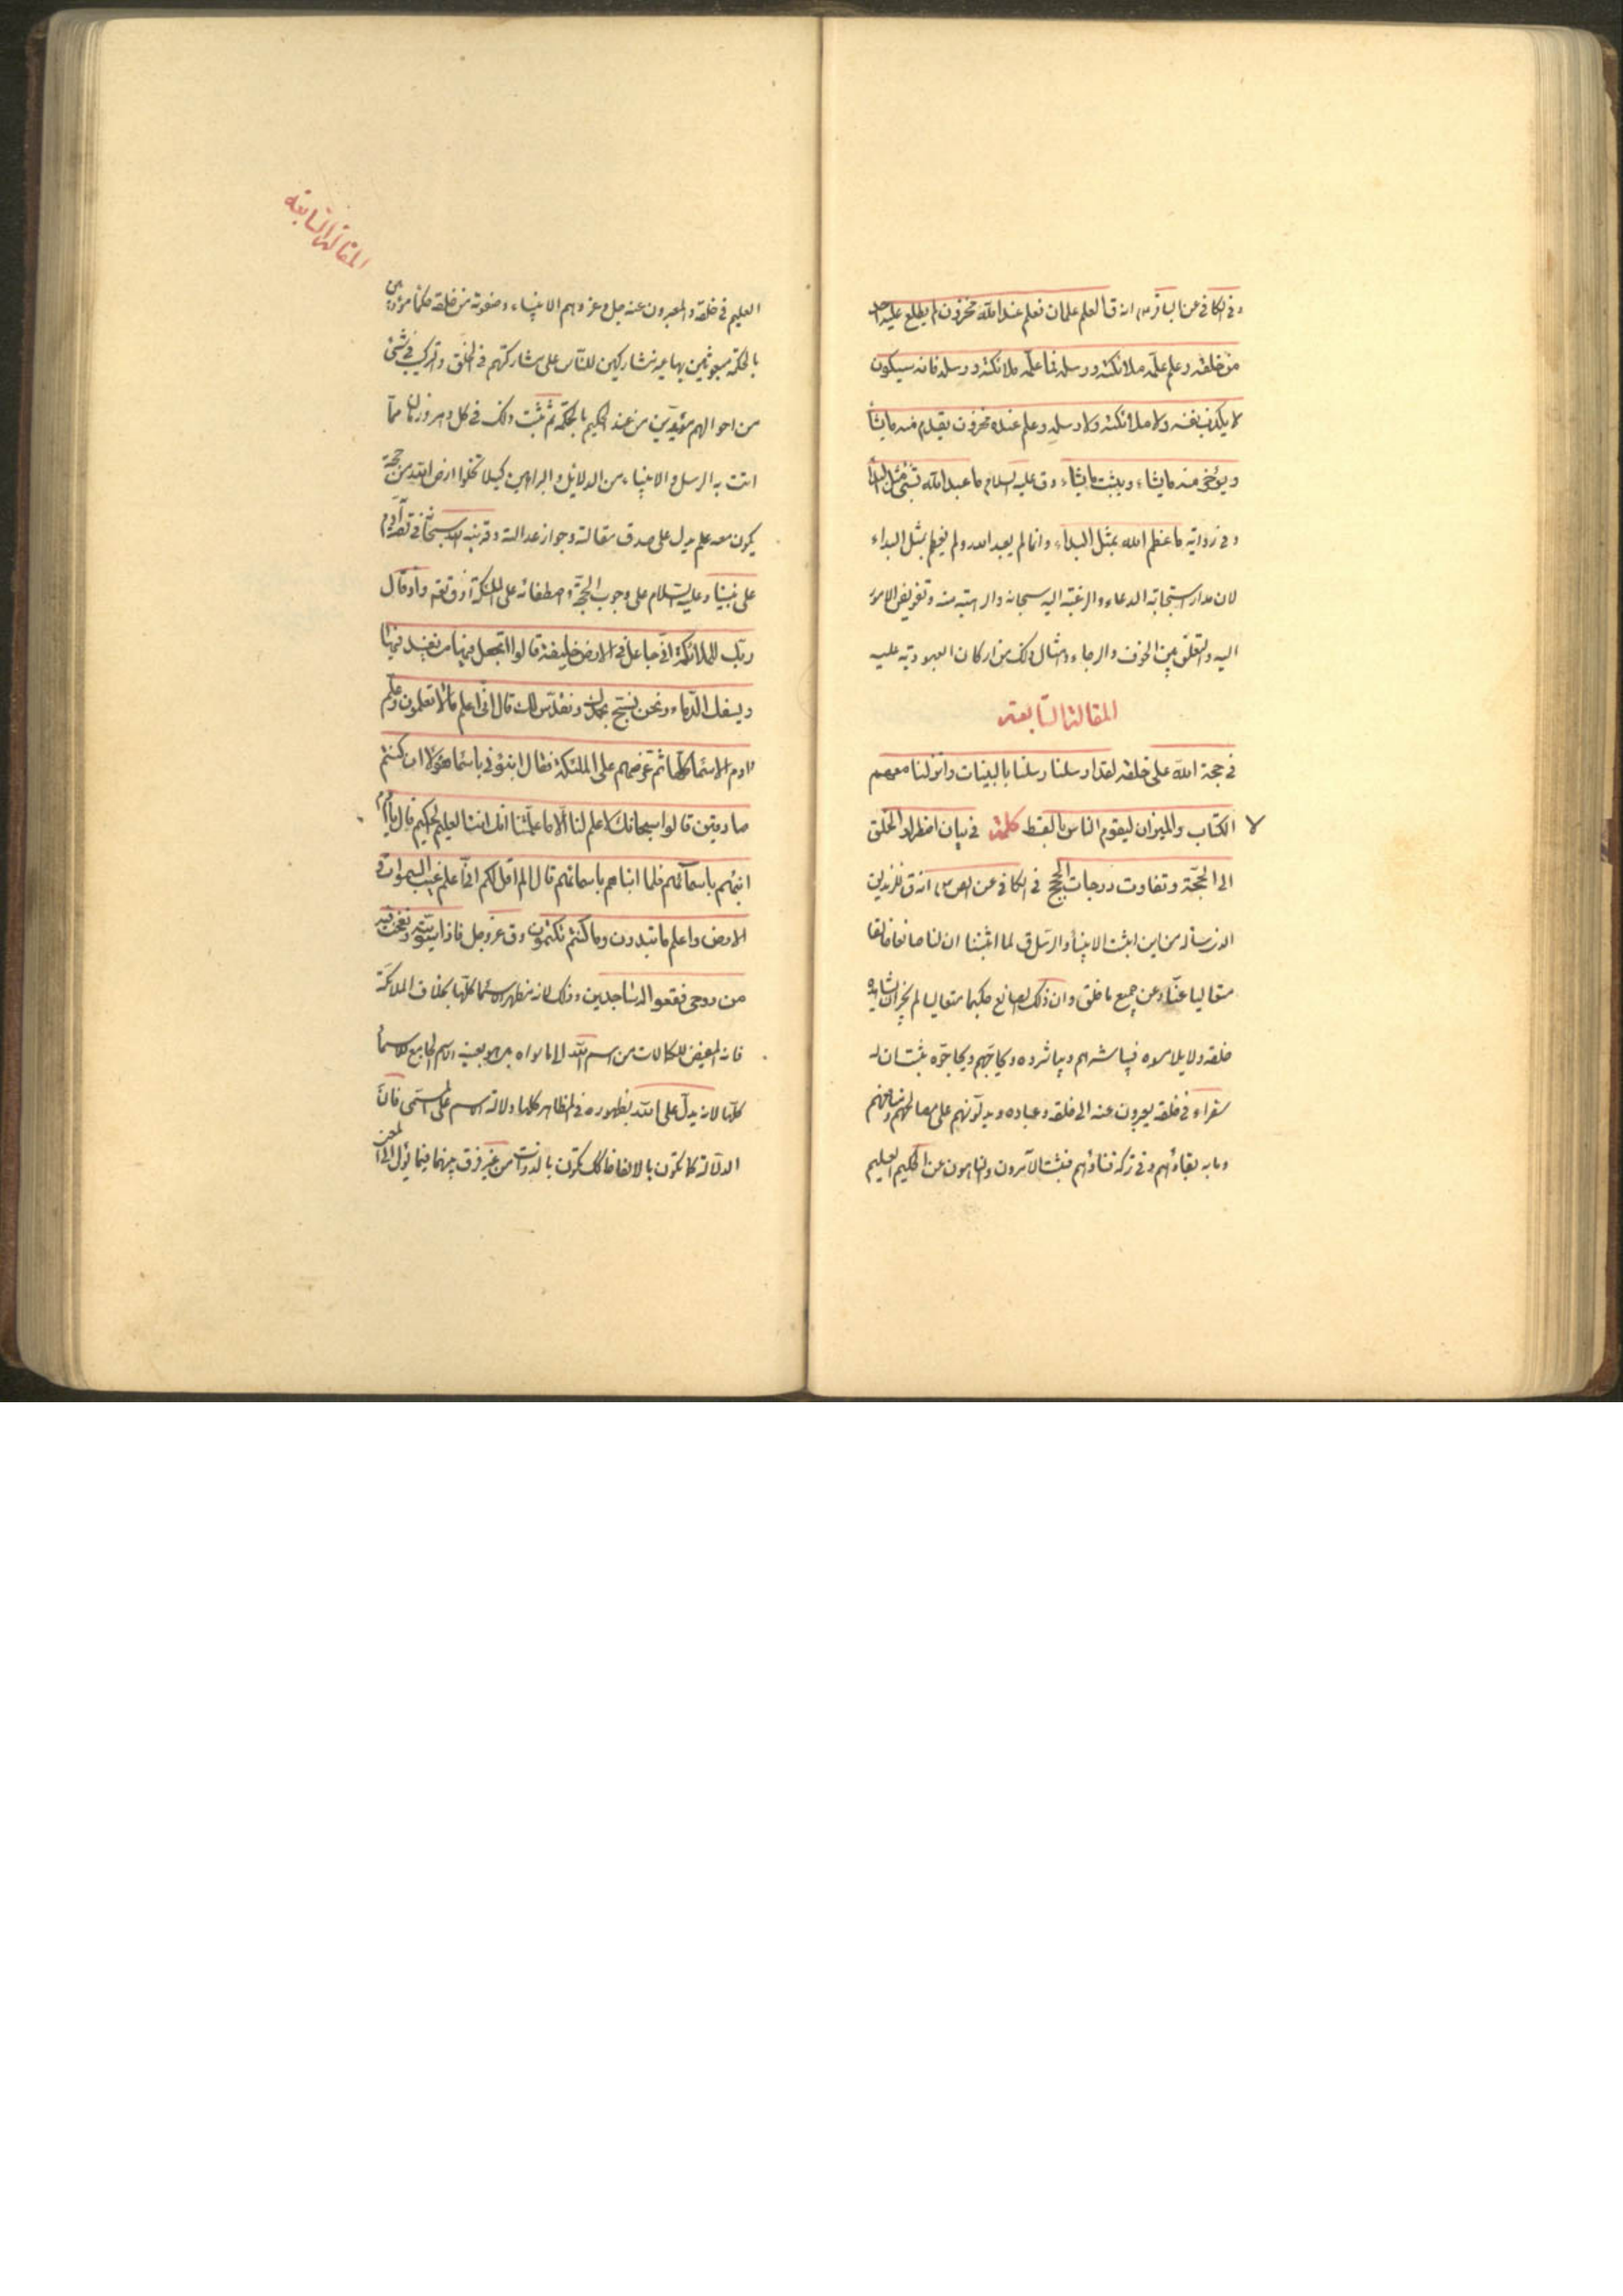 وفى الكافى عن الباقر ع انه قال العلم علمان فعلم عند الله مخزون لم يطلع عليه احد
من خلقه وعلم علّمه ملائكته ورسله فما علّمه ملائكته ورسله فانه سيكون
لا يكذب نفسه ولا ملائكته ولا رسله وعلم عنده مخزون يقدم منه ما يشاء
ويؤخر منه ما يشاء ويثبت ما يشاء وق عليه السلام ما عبد الله بشئ مثل البداء
وفى رواية ما عظم الله بمثل البداء وانما لم يعبد الله ولم يعظم بمثل البداء
لان مدار استجابة الدعاء والرغبة اليه سبحانه والرهبة منه وتفويض الامور
اليه والتعلق بين الخوف والرجاء وامثال ذلك من اركان العبودية عليه
المقالة السابعة
فى حجة الله على خلقه لقد ارسلنا رسلنا بالبينات وانزلنا معهم
لا الكتاب والميزان ليقوم الناس بالقسط كلمة فى بيان اضطرار الخلق
الى الحجّة وتفاوت درجات الحجج فى الكافى عن الص ع انه ق للزنديق
الذى ساله من اين اثبت الانبياء والرسل ق لما اثبتنا ان لنا صانعا خالقا
متعاليا عنّا وعن جميع ما خلق وان ذلك الصانع حكيما متعاليا لم يجز ان يشاهده
خلقه ولا يلامسوه فيباشرهم ويباشروه ويحاجّهم ويحاجّوه ثبت ان له
سفراء فى خلقه يعبرون عنه الى خلقه وعباده ويدلّونهم على مصالحهم ومنافعهم
وما به بقاؤهم وفى تركه فناؤهم فثبت الآمرون والناهون عن الحكيم العليم
المقالة السابعة
العليم فى خلقه والمعبرون عنه جل وعز وهم الانبياء وصفوته من خلقه حكماء مؤدبين
بالحكمة مبعوثين بها غير مشاركين للناس على مشاركتهم فى الخلق والتركيب فى شئ
من احوالهم مؤيدين من عند الحكيم بالحكمة ثم ثبت ذلك فى كل دهر وزمان مما
اتت به الرسل والانبياء من الدلائل والبراهين كيلا تخلوا ارض الله من حجة
يكون معه علم يدل على صدق مقالته وجواز عدالته وقد نبه الله سبحانه فى قصة آدم
على نبينا وعليه السلام على وجوب الحجة واصطفائه على الملئكة اذ ق تعم واذ قال
ربك للملائكة انى جاعل فى الارض خليفة قالوا اتجعل فيها من يفسد فيها
ويسفك الدماء ونحن نسبح بحمدك ونقدس لك قال انى اعلم ما لا تعلمون وعلم
ادم الاسماء كلها ثم عرضهم على الملئكة فقال انبئونى باسماء هؤلاء ان كنتم
صادقين قالوا سبحانك لا علم لنا الا ما علمتنا انك انت العليم الحكيم قال يا آدم
انبئهم باسمائهم فلما انباهم باسمائهم قال الم اقل لكم انى اعلم غيب السموات و
الارض واعلم ما تبدون وما كنتم تكتمون وق عز وجل فاذا سويته ونفخت فيه
من روحى فقعوا له ساجدين وذلك لانه مظهر الاسماء كلها بخلاف الملائكة
فانه المفيض للكمالات من اسم الله الى ما سواه بل هو بعينه الاسم الجامع للاسماء
كلها لانه يدل على الله بظهوره فى المظاهر كلها دلالة الاسم على المسمى فان
الدلالة كما تكون بالالفاظ كك تكون بالذوات من غير فرق بينهما فيما يؤل الى المعنى